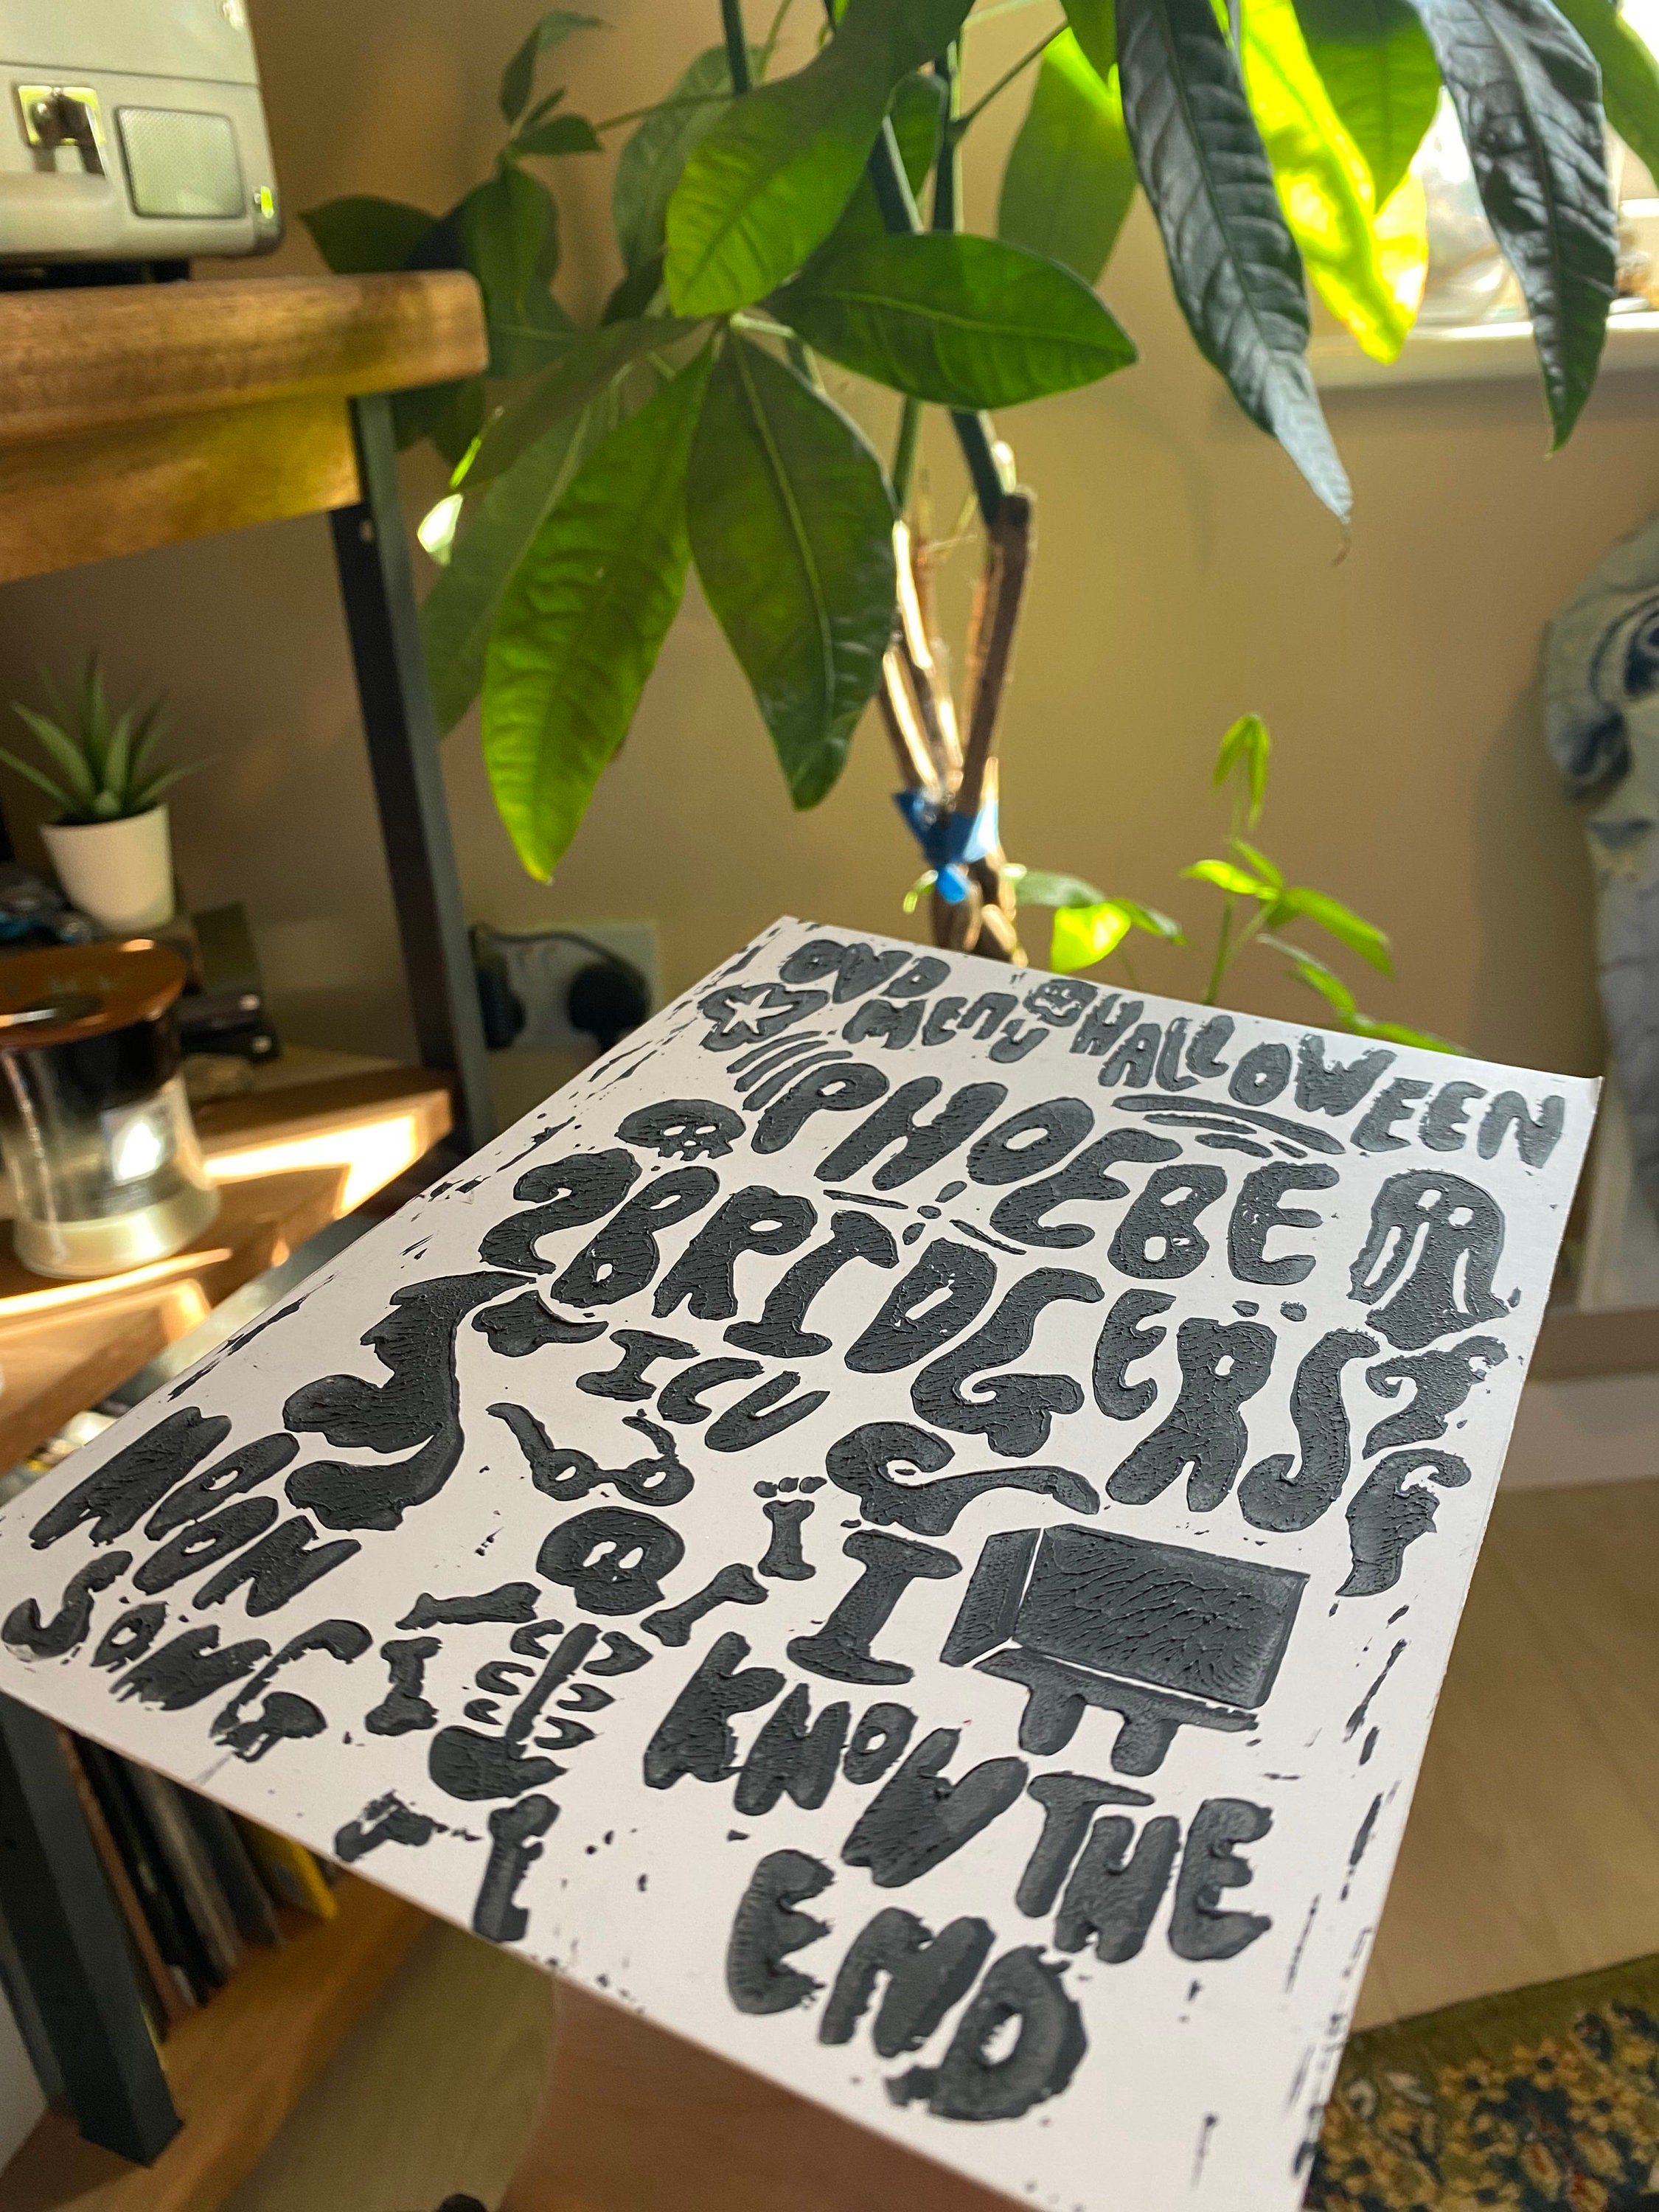 DVD
MEnU
HALLOWEEN
PHOEBE
BRIDGERS
ICU
MOON
SONG
I
KNOW THE
END